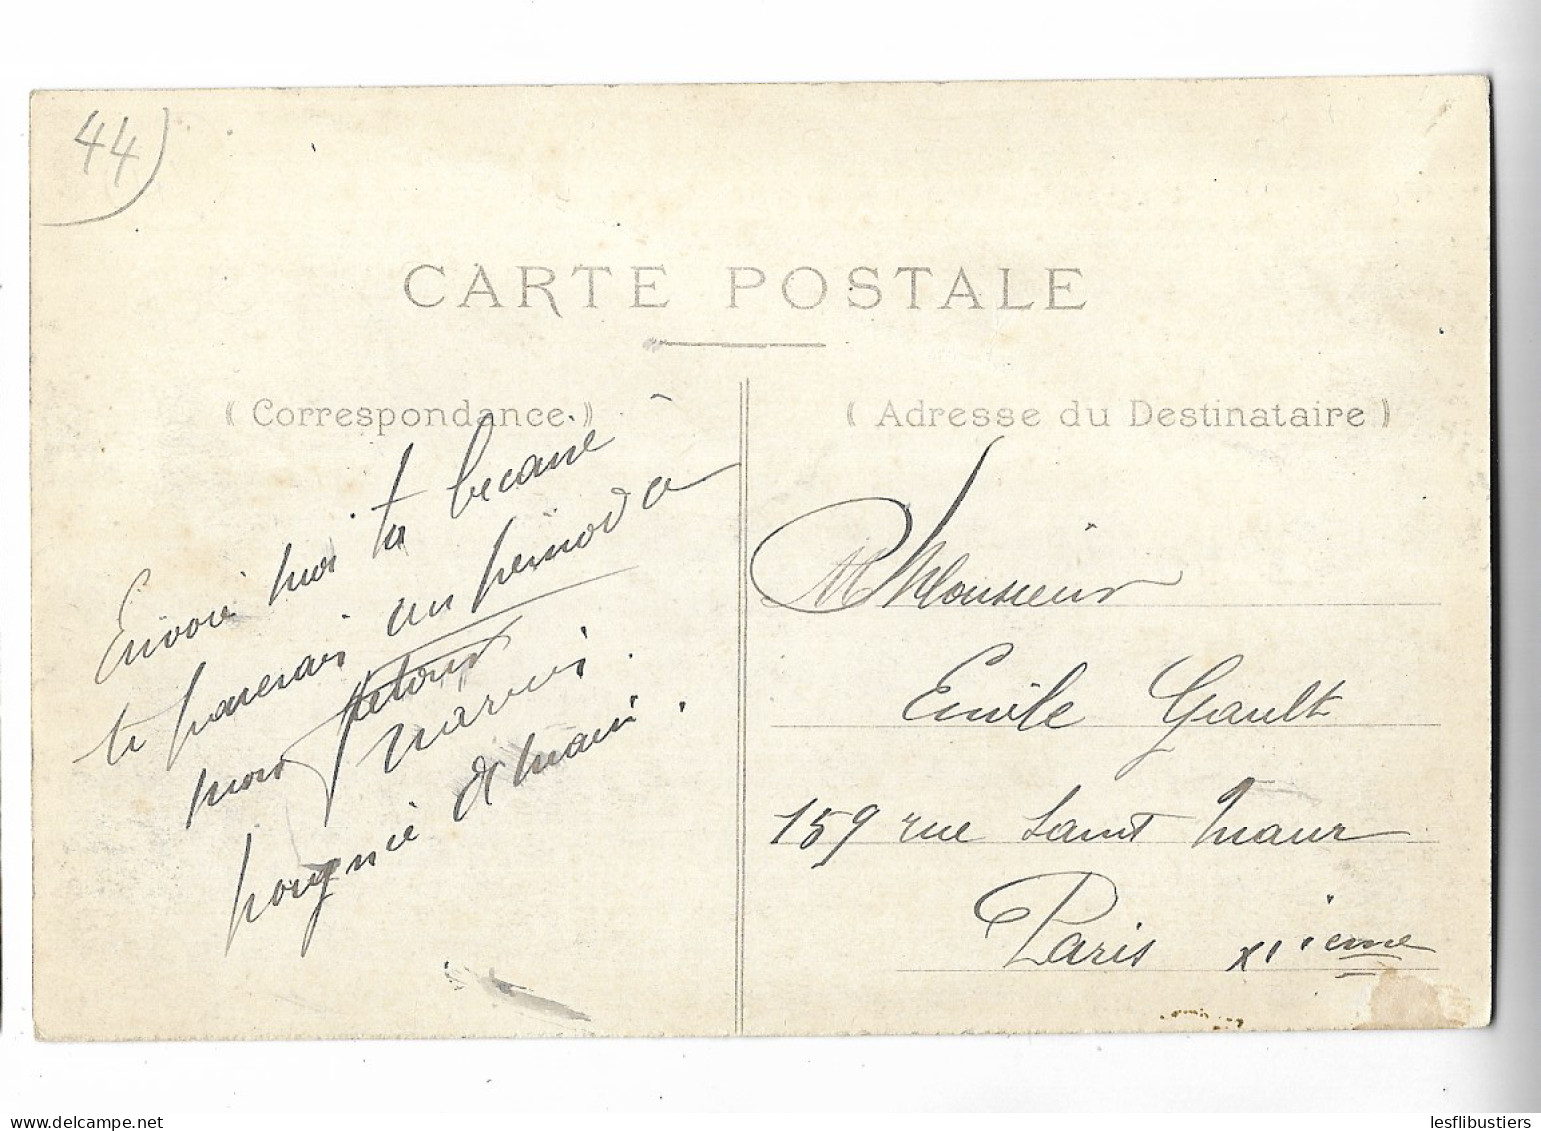 44
CARTE POSTALE
(Correspondance)
(Adresse du Destinataire)
Envoie moi ta becane
te payerais un pernod a
mon retour
poignée de main.
Monsieur
Emile Gault
159 rue Saint Maur
Paris XIieme
www.delcampe.net
lesflibustiers